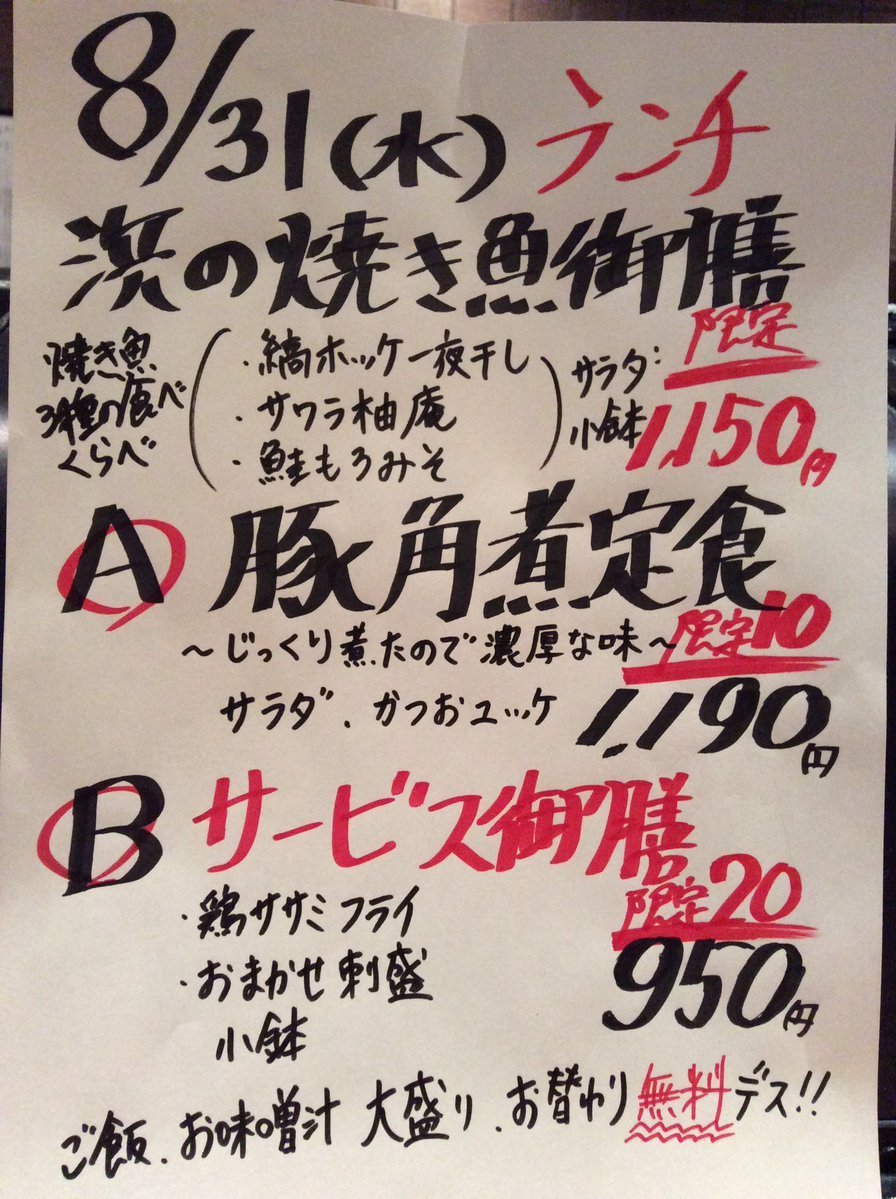 8/31(水) ランチ
浜の焼き魚御膳
限定
焼き魚
3種の食べ
くらべ
・縞ホッケ一夜干し
・サワラ柚庵
・鮭もろみそ
サラダ:
小鉢
1,150円
A 豚角煮定食
～じっくり煮たので濃厚な味～
限定10
サラダ、かつおユッケ
1,190円
B サービス御膳
限定20
・鶏ササミフライ
・おまかせ刺盛
小鉢
950円
ご飯、お味噌汁 大盛り、お替わり無料デス!!